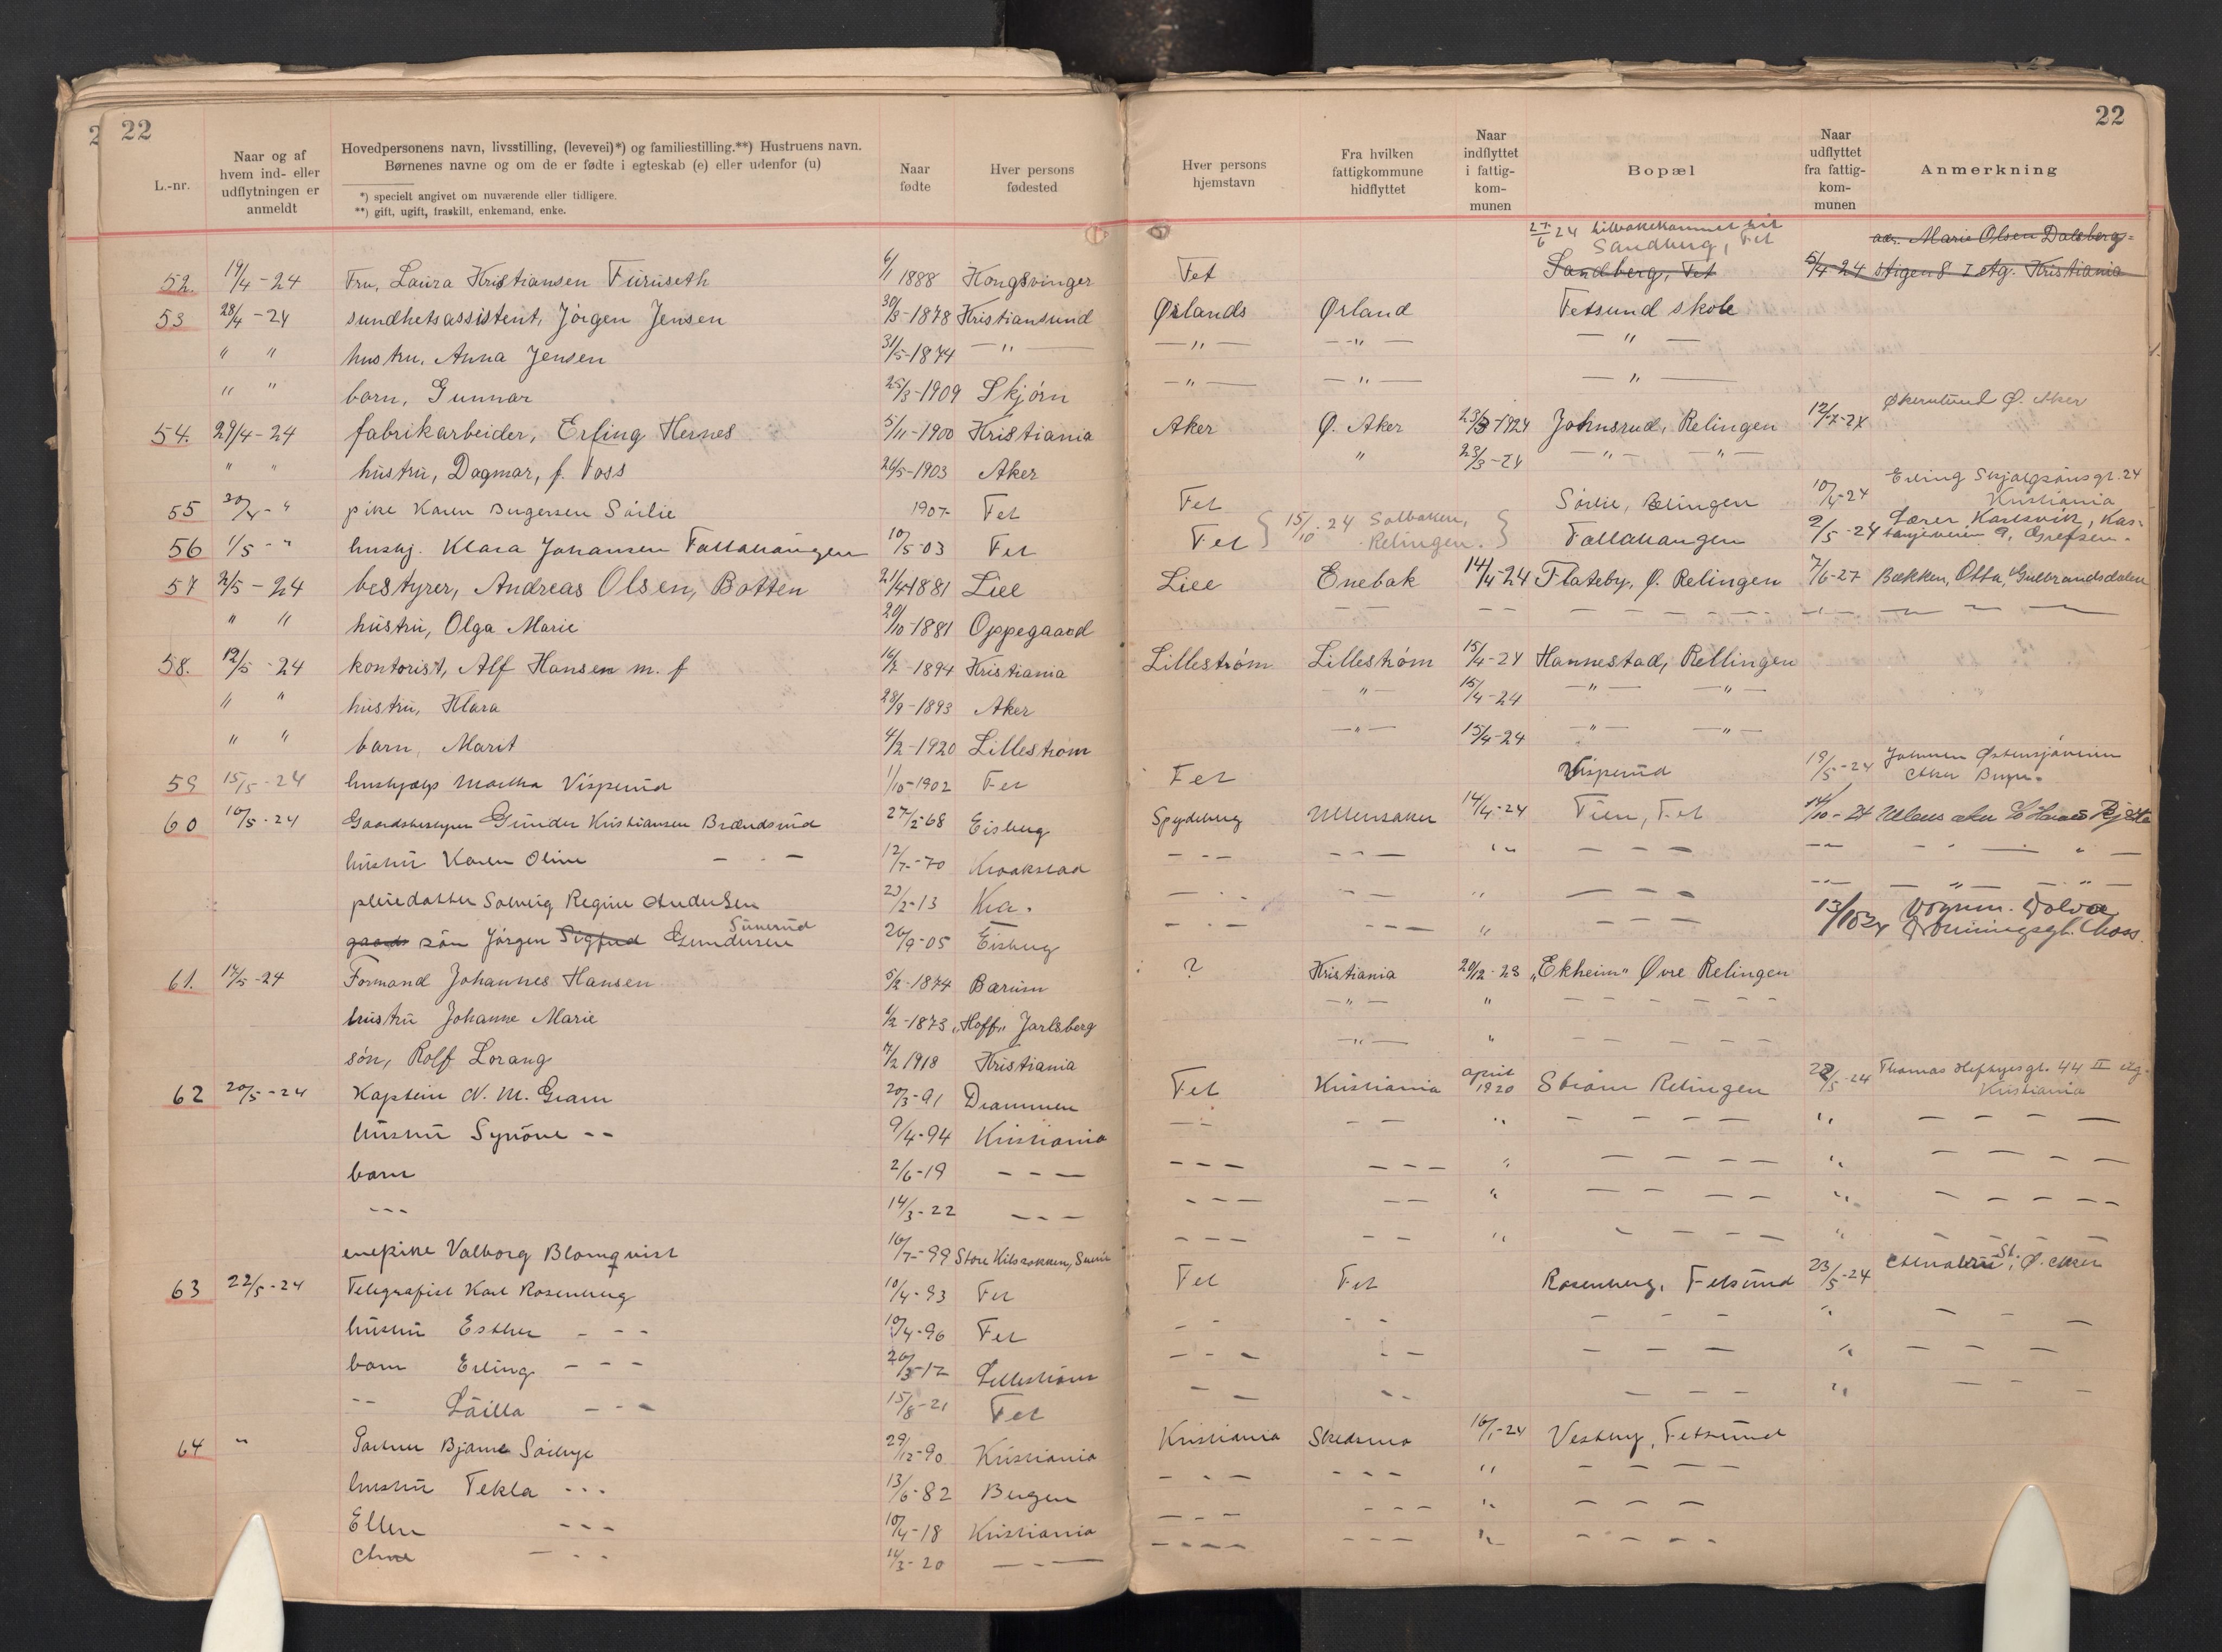 22
22
L.-nr.
Naar og af hvem ind- eller udflytningen er anmeldt
Hovedpersonens navn, livsstilling, (levevei)*) og familiestilling.**) Hustruens navn.
Børnenes navne og om de er fødte i egteskab (e) eller udenfor (u)
*) specielt angivet om nuværende eller tidligere.
**) gift, ugift, fraskilt, enkemand, enke.
Naar fødte
Hver persons fødested
Hver persons hjemstavn
Fra hvilken fattigkommune hidflyttet
Naar indflyttet i fattig-kom-munen
Bopæl
Naar udflyttet fra fattig-kom-munen
Anmerkning
27/6 24 tilbakekommet
Sandberg, Fet
Marie Olsen Dalsberg-
52. 19/4-24 Fru, Laura Kristiansen Furuseth 6/1 1888 Kongsvinger Fet Sandberg, Fet 5/4-24 stigen 8. I etg. Kristiania
53 28/4-24 sundhetsassistent, Jörgen Jensen 30/3-1878 Kristiansund Ørlands Ørland Fetsund skole
" " hustru, Anna Jensen 31/5-1874 —"— —"— —"— —"—
" " barn, Gunnar 25/3-1909 Skjörn —"— —"— —"—
Økernlund Ø. Aker
54. 29/4-24 fabrikarbeider, Erling Hernes 5/11-1900 Kristiania Aker Ø. Aker 23/3-1924 Johnsrud, Relingen
" " hustru, Dagmar, f. Voss 26/5-1903 Aker " 23/3-24 —"— —"—
Erling Skjalgsönsgt. 24
55 30/4-" pike Karen Birgersen Sörlie 1907 Fet Fet Sörlie, Relingen 10/4-24 Kristiania
15/10 24 Solbakken, Relingen.
56 1/5-" hushj. Klara Johansen Fallahaugen 10/5-03 Fet Fet Fallahaugen 2/5-24 Lærer Karlsvik, Kastanjeveien 9, Grefsen.
57 2/5-24 bestyrer, Andreas Olsen, Botten 21/4-1881 Lier Lier Enebak 14/4-24 Flateby, Ø. Relingen 7/6-27 Bækken, Otta, Gulbrandsdalen
" " hustru, Olga Marie 20/10-1881 Oppegaard
58. 12/5-24 kontorist, Alf Hansen m. f 16/2-1894 Kristiania Lilleström Lilleström 15/4-24 Hannestad, Rellingen
" " hustru, Klara 28/9-1893 Aker —"— 15/4-24 —"— —"—
" " barn, Marit 4/2-1920 Lilleström —"— 15/4-24 —"— —"—
59 15/5-24 hushjælp Martha Visperud 1/10-1902 Fet Fet Visperud 19/5-24 Johnsen Østensjöveien Aker
60 16/5-24 Gaardsbestyrer Gunder Kristiansen Brændsrud 27/2-68 Eisberg Spydeberg Ullensaker 14/4-24 Tien, Fet 14/10-24 Ullensaker
hustru Karen Oline — - — 12/7-70 Kraakstad
pleiedatter Solveig Regine Andersen 23/2-13 Kra.
Sunerud
gaards sön Jörgen Sigfred Gundersen 26/9-05 Eisberg 13/10 24 Dronningsgt. Moss.
61. 17/5-24 Formand Johannes Hansen 5/2-1874 Bærum ? Kristiania 20/12-23 "Ekheim" Øvre Relingen
hustru Johanne Marie 6/2-1873 "Hoff" Jarlsberg —"— "
sön, Rolf Lorang 7/2 1918 Kristiania —"— "
62 20/5-24 Kaptein N. M. Gram 20/3-91 Drammen Fet Kristiania april 1920 Ström Relingen 22/5-24 Thomas Heftyesgt. 44 II etg. Kristiania
hustru Synöve -- 9/4-94 Kristiania
barn 2/6-19 - - -
--- 14/3-22 - - -
enepike Valborg Blomqvist 16/7-99 Store
63 22/5-24 Telegrafist Karl Rosenberg 10/4-93 Fet Fet Fet Rosenberg, Fetsund 23/5-24 St. Ø. Aker
hustru Esther - - - 10/4-96 Fet
barn Erling - - - 26/3-17 Lilleström
-- Läilla - - - 15/8-21 Fet
64 " Bjarne Sörbye 29/12-90 Kristiania Kristiania Skedsmo 16/1-24 Vestby, Fetsund
hustru Tekla - - - 13/6-82 Bergen
Ellen - - - 10/4-18 Kristiania
- - - 14/3-20 - - -